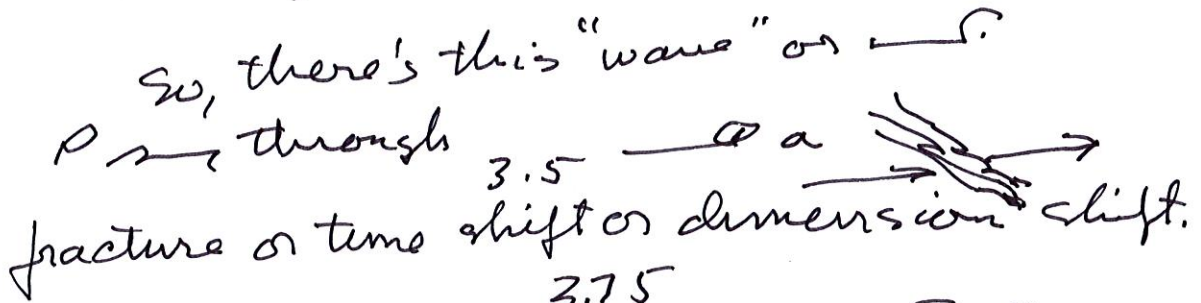 So, there's this "wave" or
through 3.5 a
fracture or time shift or dimension shift.
3.75